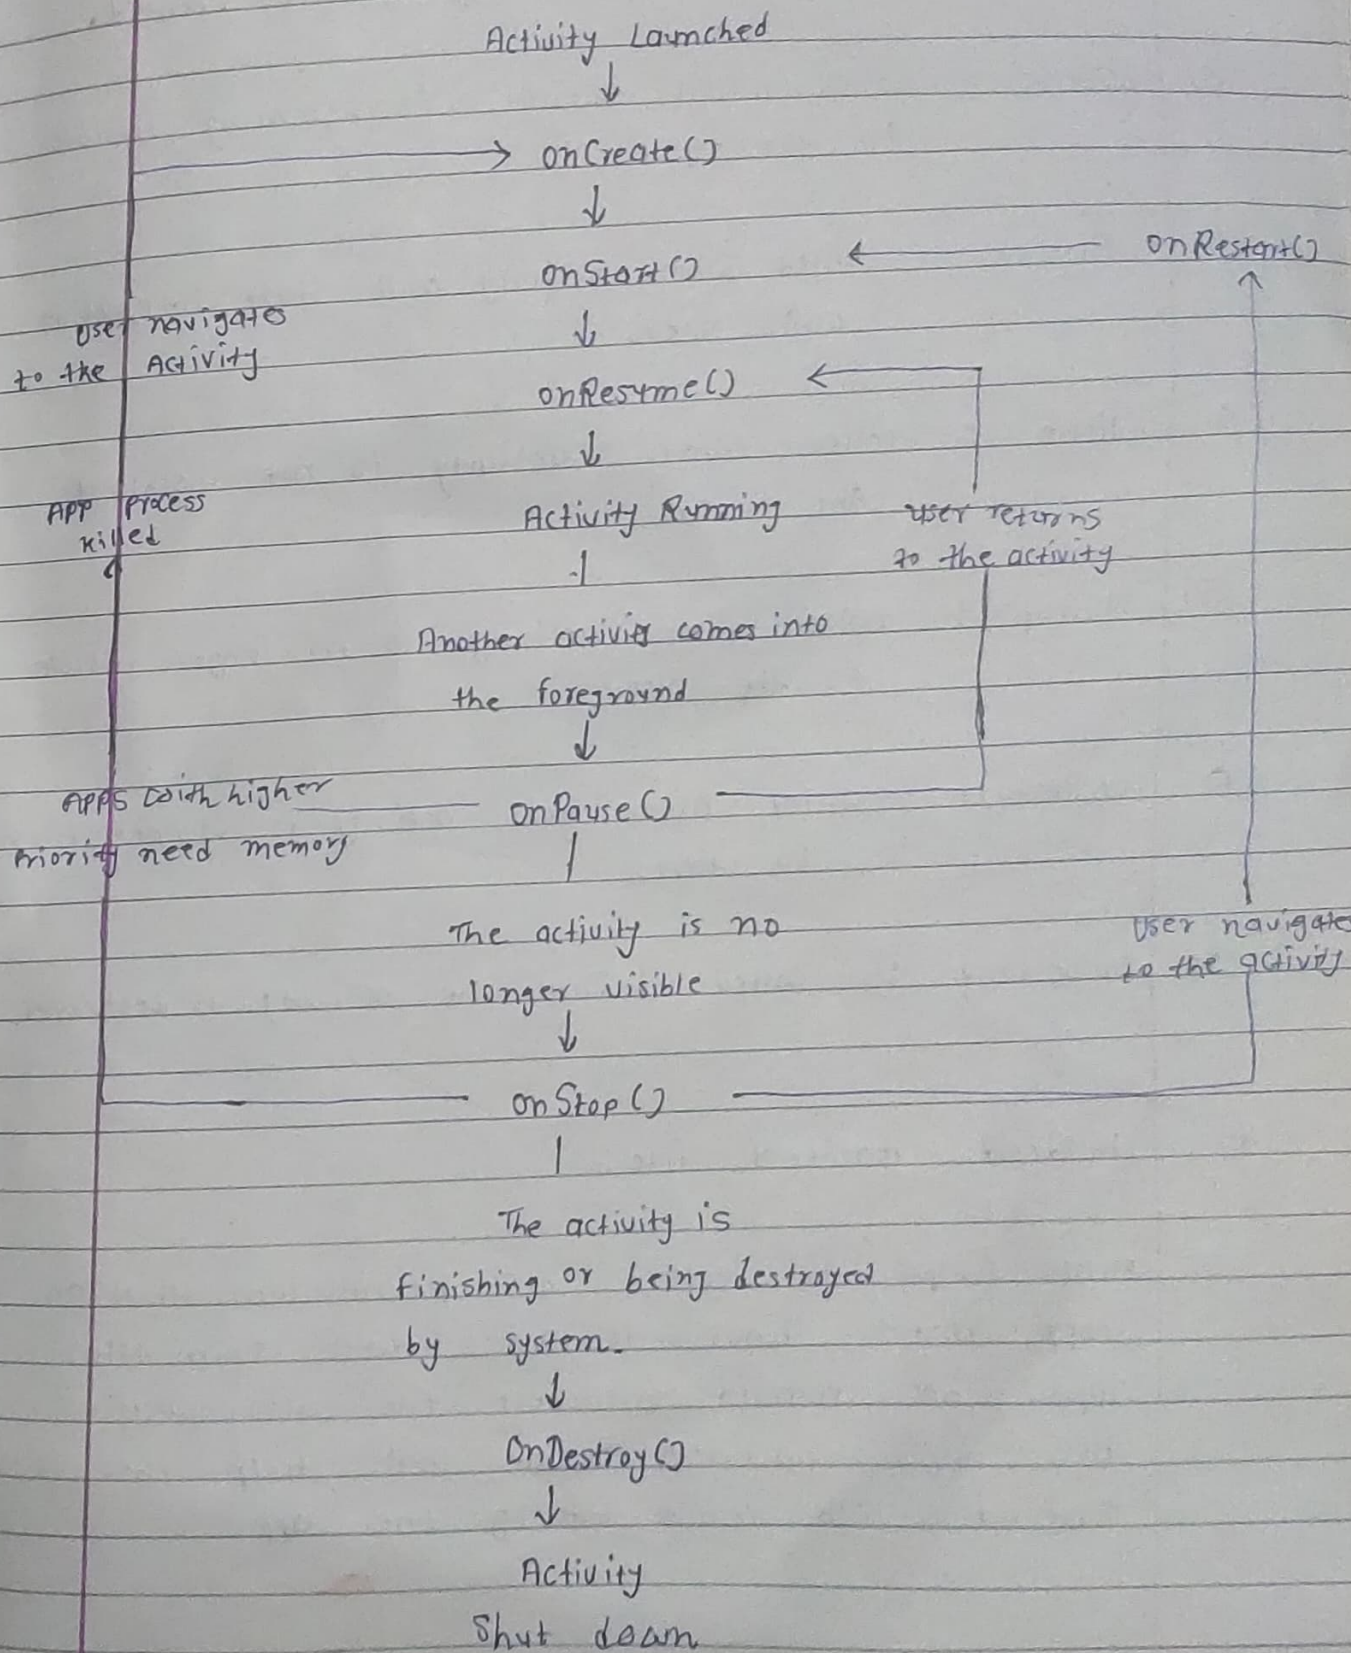 Activity Launched
onCreate()
onRestart()
onStart()
User navigate
to the Activity
onResume()
App Process
killed
Activity Running
user returns
to the activity
Another activity comes into
the foreground
Apps with higher
Priority need memory
onPause()
The activity is no
longer visible
User navigate
to the activity
onStop()
The activity is
finishing or being destroyed
by system.
OnDestroy()
Activity
Shut down